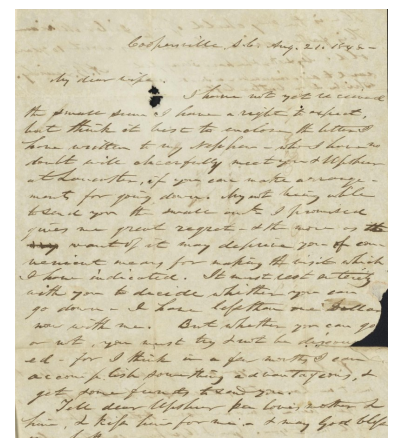 Cooperville, S.C. Aug. 21. 184
My dear Wife.
I have not yet received
the small sum I have a right to expect,
but think it best to enclose the letter I
have written to my nephew - who I have no
doubt will cheerfully meet you & Upshur
at, if you can make arrange-
ments for going down. My not being able
to send you the small sum I promised
gives me great regret - & the more as the
want of it may deprive you of con-
venient means for making the visit which
I have indicated. It must rest entirely
with you to decide whether you can
go down - I have less than one dollar
now with me. But whether you can go
or not, you must try & not be
ed - for I think in a few months I can
accomplish something advantageous, &
get some funds to send you.
Tell dear Upshur
him, & kiss him for me & may God bless